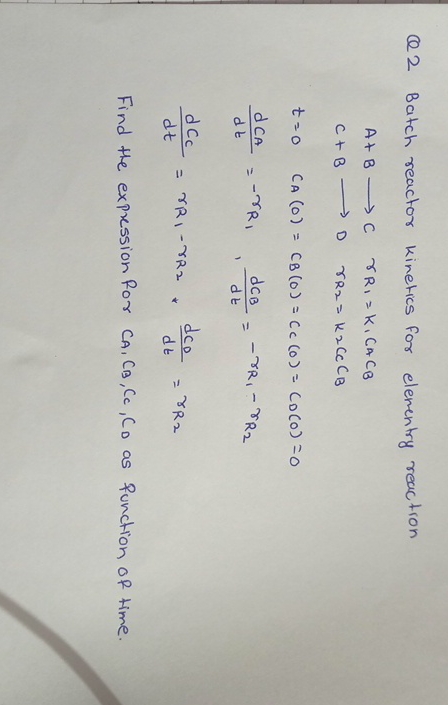 Q2 Batch reactor kinetics for elementry reaction
A+B ⟶ C rR1 = K1CACB
C+B ⟶ D rR2 = K2CCCB
t=0 CA(0) = CB(0) = CC(0) = CD(0) = 0
dCA/dt = -rR1 , dCB/dt = -rR1 - rR2
dCC/dt = rR1 - rR2 & dCD/dt = rR2
Find the expression for CA, CB, CC, CD as function of time.